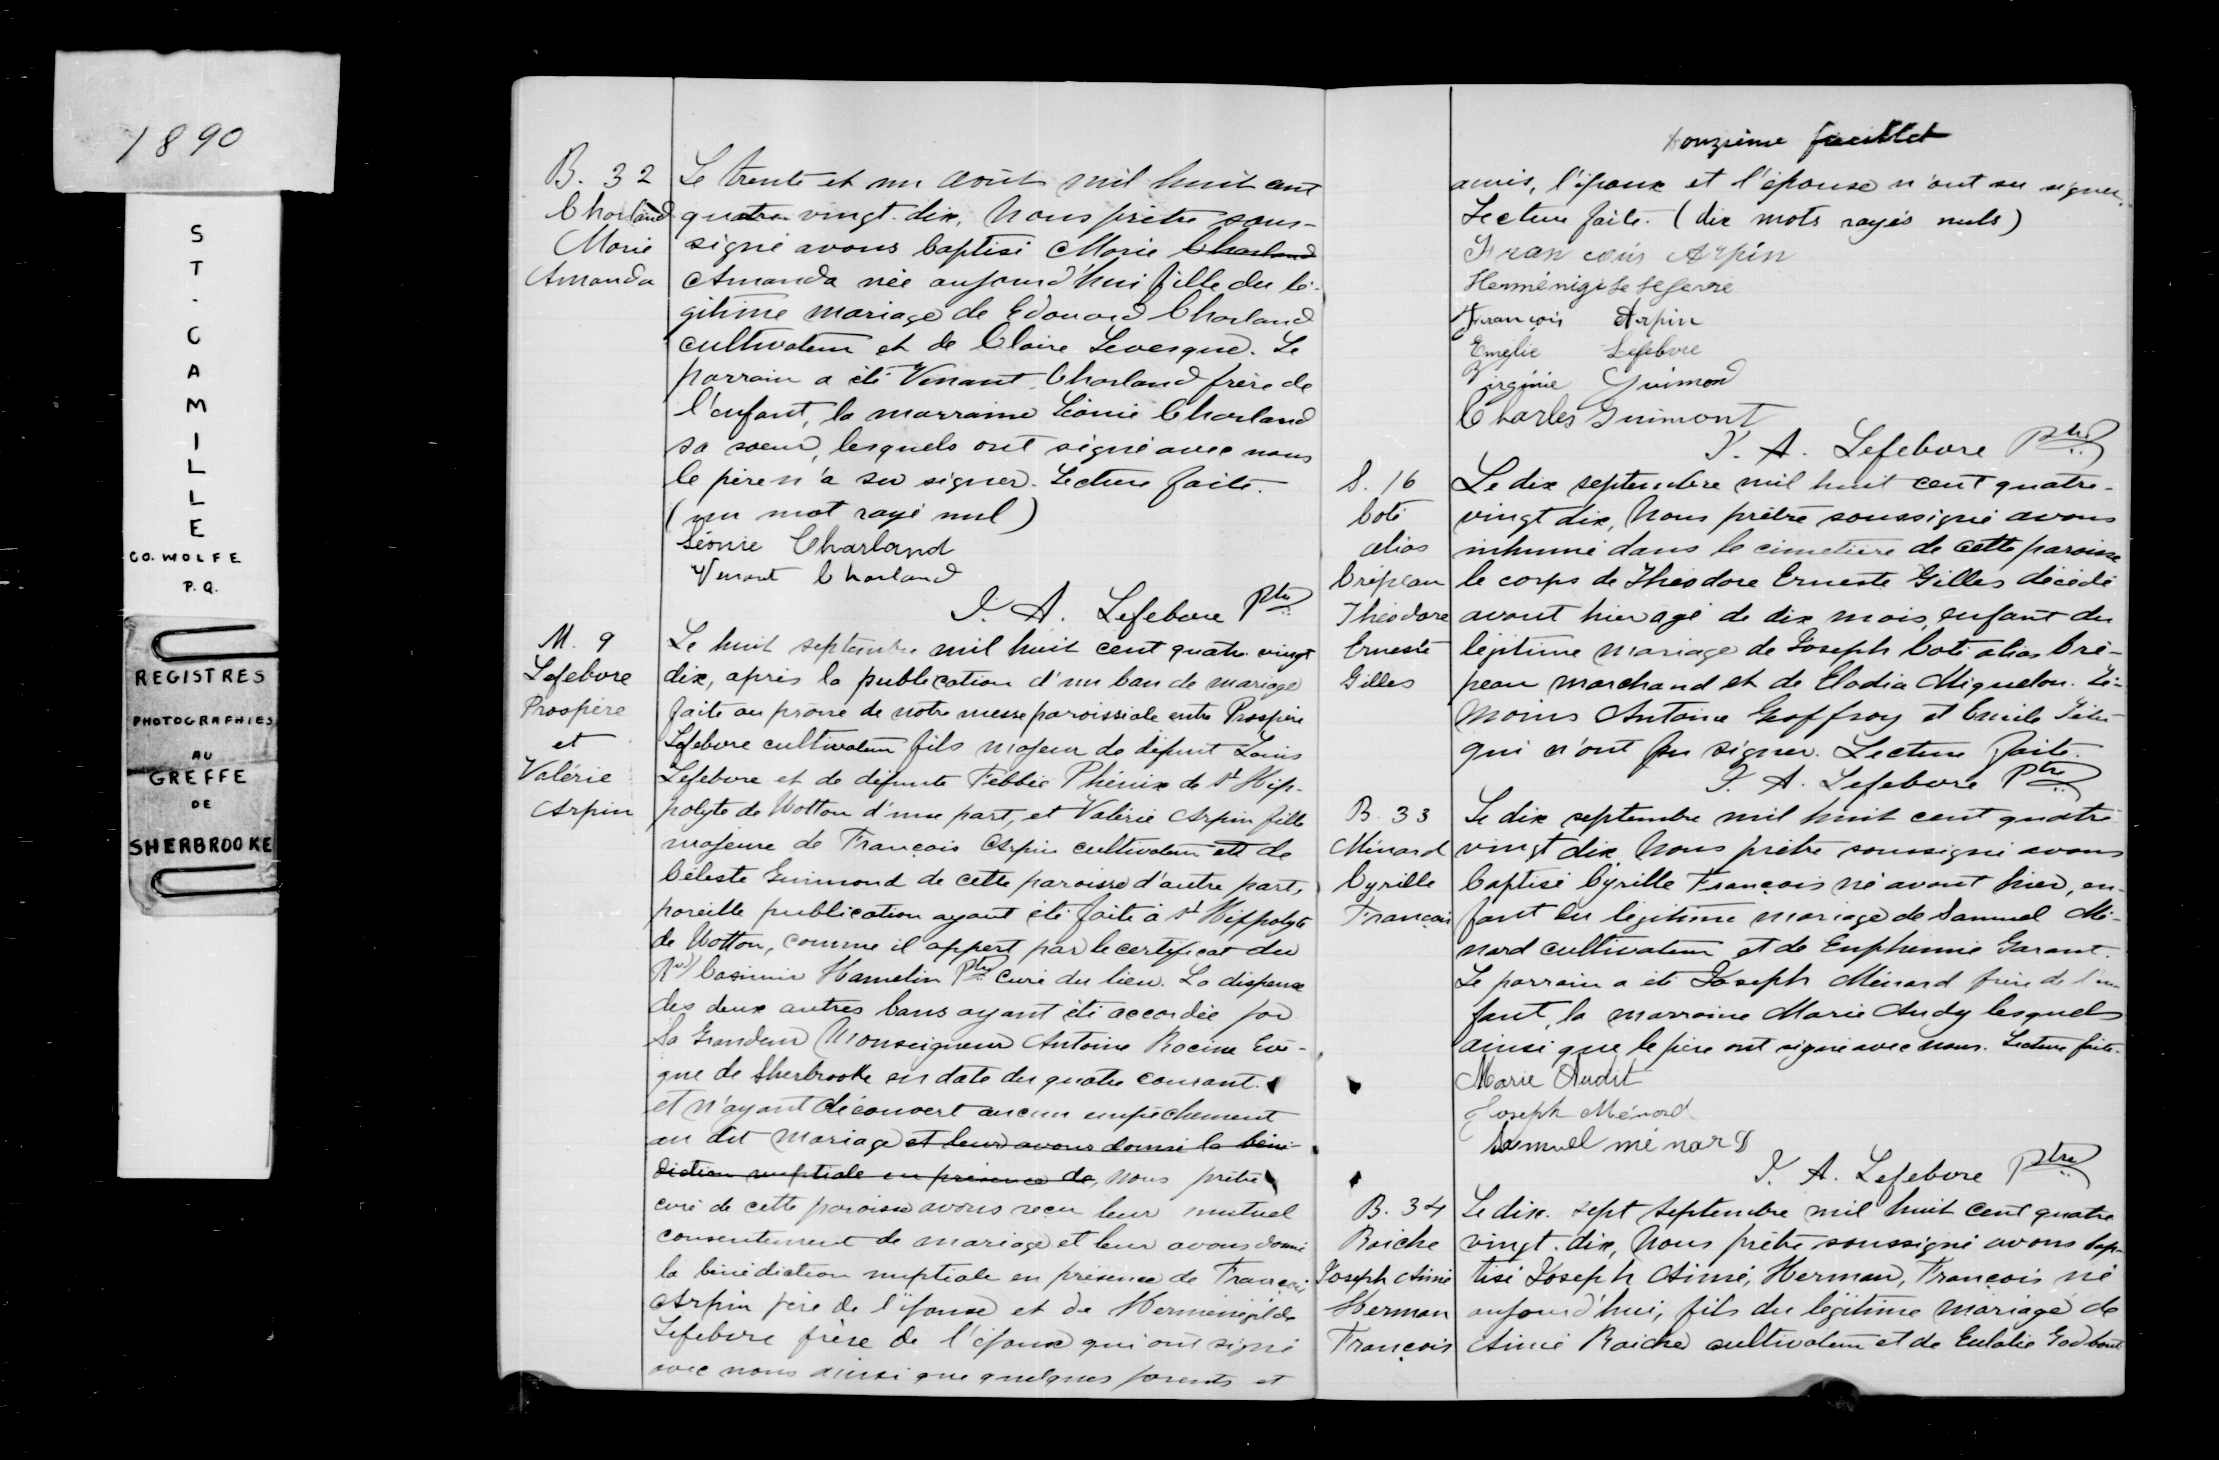 1890
ST. CAMILLE
CO. WOLFE
P.Q.
REGISTRES
PHOTOGRAPHIES
AU
GREFFE
DE
SHERBROOKE
B. 32
Charland
Marie
Amanda
Le trente et un août mil huit cent
quatre vingt-dix, Nous prêtre sous-
signé avons baptisé Marie Charland
Amanda née aujourd'hui fille du lé-
gitime mariage de Edouard Charland
cultivateur et de Claire Levesque. Le
parrain a été Venant Charland frère de
l'enfant, la marraine Léonie Charland
sa soeur, lesquels ont signé avec nous
le père n'a su signer. Lecture faite.
(un mot rayé nul)
Léonie Charland
Venant Charland
J. A. Lefebvre Ptre
M. 9
Lefebvre
Prospère
et
Valérie
Arpin
Le huit septembre mil huit cent quatre vingt
dix, après la publication d'un ban de mariage
faite au prône de notre messe paroissiale entre Prospère
Lefebvre cultivateur fils majeur de défunt Louis
Lefebvre et de défunte Phénix de St Hip-
polyte de Wotton d'une part, et Valérie Arpin fille
majeure de François Arpin cultivateur et de
Céleste Guimond de cette paroisse d'autre part,
pareille publication ayant été faite à St Hippolyte
de Wotton, comme il appert par le certificat du
Rvd Casimir Hamelin Ptre curé du lieu. La dispense
des deux autres bans ayant été accordée par
Sa Grandeur Monseigneur Antoine Racine Evê-
que de Sherbrooke en date du quatre courant
et n'ayant découvert aucun empêchement
au dit mariage et leur avons donné la béné-
diction nuptiale en présence de, nous prêtre
curé de cette paroisse avons reçu leur mutuel
consentement de mariage et leur avons donné
la bénédiction nuptiale en présence de François
Arpin père de l'épouse et de Herménégilde
Lefebvre frère de l'époux qui ont signé
avec nous ainsi que quelques parents et
onzième feuillet
amis, l'époux et l'épouse n'ont su signer.
Lecture faite. (dix mots rayés nuls)
François Arpin
François Arpin
Emélie Lefebvre
Virginie Guimond
Charles Guimont
J. A. Lefebvre Ptre
S. 16
Coté
alias
Crépeau
Théodore
Erneste
Gilles
Le dix septembre mil huit cent quatre-
vingt dix, Nous prêtre soussigné avons
inhumé dans le cimetière de cette paroisse
le corps de Théodore Erneste Gilles décédé
avant hier agé de dix mois, enfant du
légitime mariage de Joseph Coté alias Cré-
peau marchand et de Elodia Miquelon. Té-
moins Antoine Geoffroy et
qui n'ont pu signer. Lecture faite.
J. A. Lefebvre Ptre
B. 33
Ménard
Cyrille
François
Le dix septembre mil huit cent quatre
vingt dix Nous prêtre soussigné avons
baptisé Cyrille François né avant hier, en-
fant du légitime mariage de Samuel Mé-
nard cultivateur et de Euphémie Garant.
Le parrain a été Joseph Ménard frère de l'en
fant, la marraine Marie Audy lesquels
ainsi que le père ont signé avec nous. Lecture faite.
Marie Audit
Joseph Ménard
Samuel ménard
J. A. Lefebvre Ptre
B. 34
Raiche
Joseph Aimé
Herman
François
Le dix-sept septembre mil huit cent quatre
vingt-dix, Nous prêtre soussigné avons bap-
tisé Joseph Aimé, Herman, François né
aujourd'hui, fils du légitime mariage de
Aimé Raiche cultivateur et de Eulalie Godbout